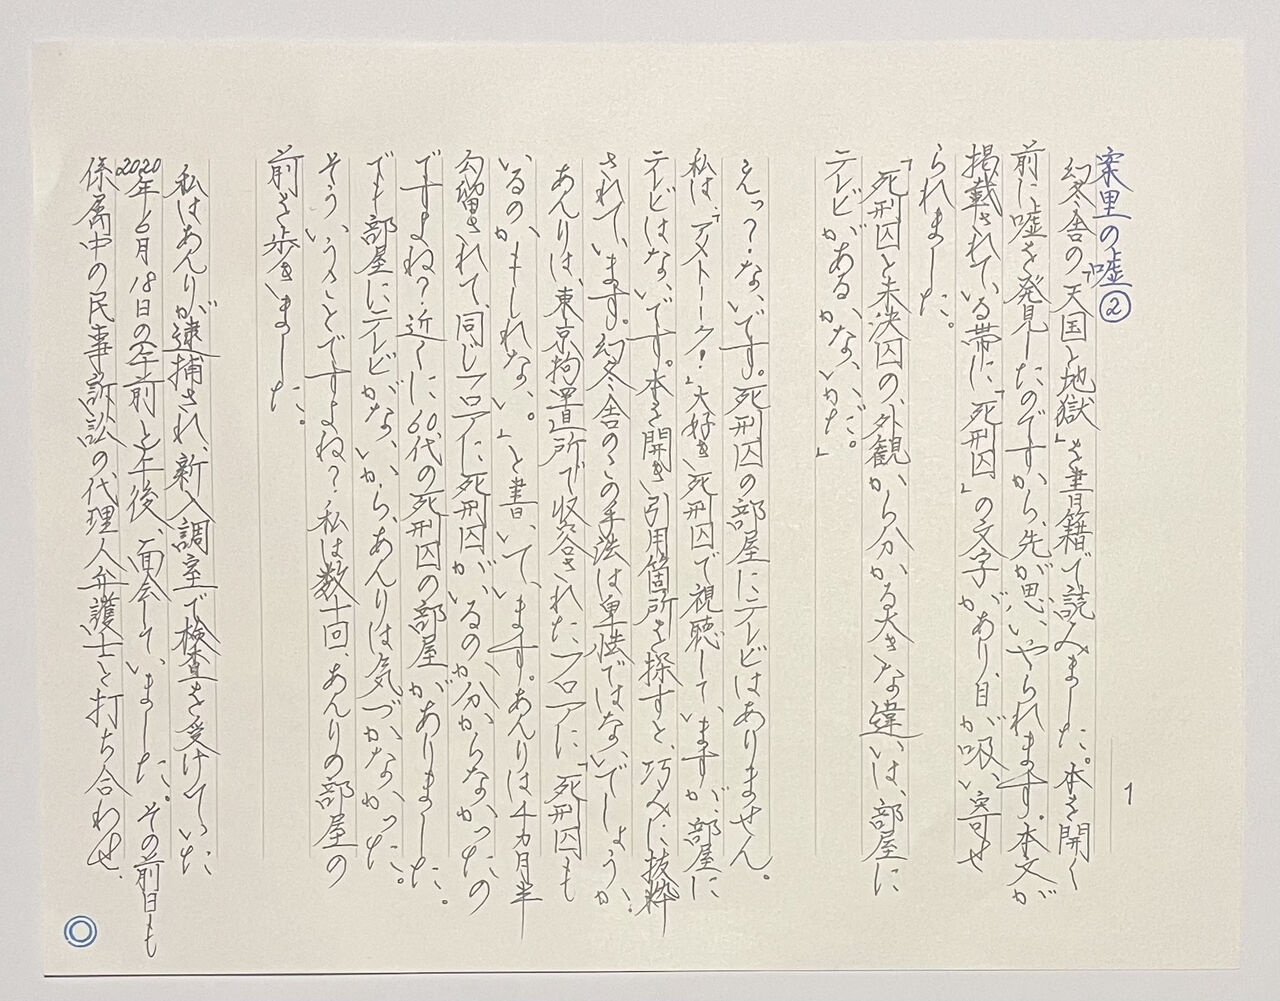 1
案里の嘘②
幻冬舎の「天国と地獄」を書籍で読みました。本を開く
前に嘘を発見したのですから、先が思いやられます。本文が
掲載されている帯に、「死刑囚」の文字があり、目が吸い寄せ
られました。
「死刑囚と未決囚の、外観から分かる大きな違いは、部屋に
テレビがあるかないかだ。」
えっ?ないです。死刑囚の部屋にテレビはありません。
私は、「アメトーーク!」大好き死刑囚で視聴していますが、部屋に
テレビはないです。本を開き引用箇所を探すと、巧みに抜粋
されています。幻冬舎のこの手法は卑怯ではないでしょうか。
あんりは、東京拘置所で収容されたフロアに、「死刑囚も
いるのかもしれない。」と書いています。あんりは4カ月半
勾留されて、同じフロアに死刑囚がいるのか分からなかったの
ですよね?近くに60代の死刑囚の部屋がありました。
でも部屋にテレビがないから、あんりは気づかなかった。
そういうことですよね?私は数十回、あんりの部屋の
前を歩きました。
私はあんりが逮捕され、新入調室で検査を受けていた
2020年6月18日の午前と午後、面会していました。その前日も
係属中の民事訴訟の代理人弁護士と打ち合わせ、